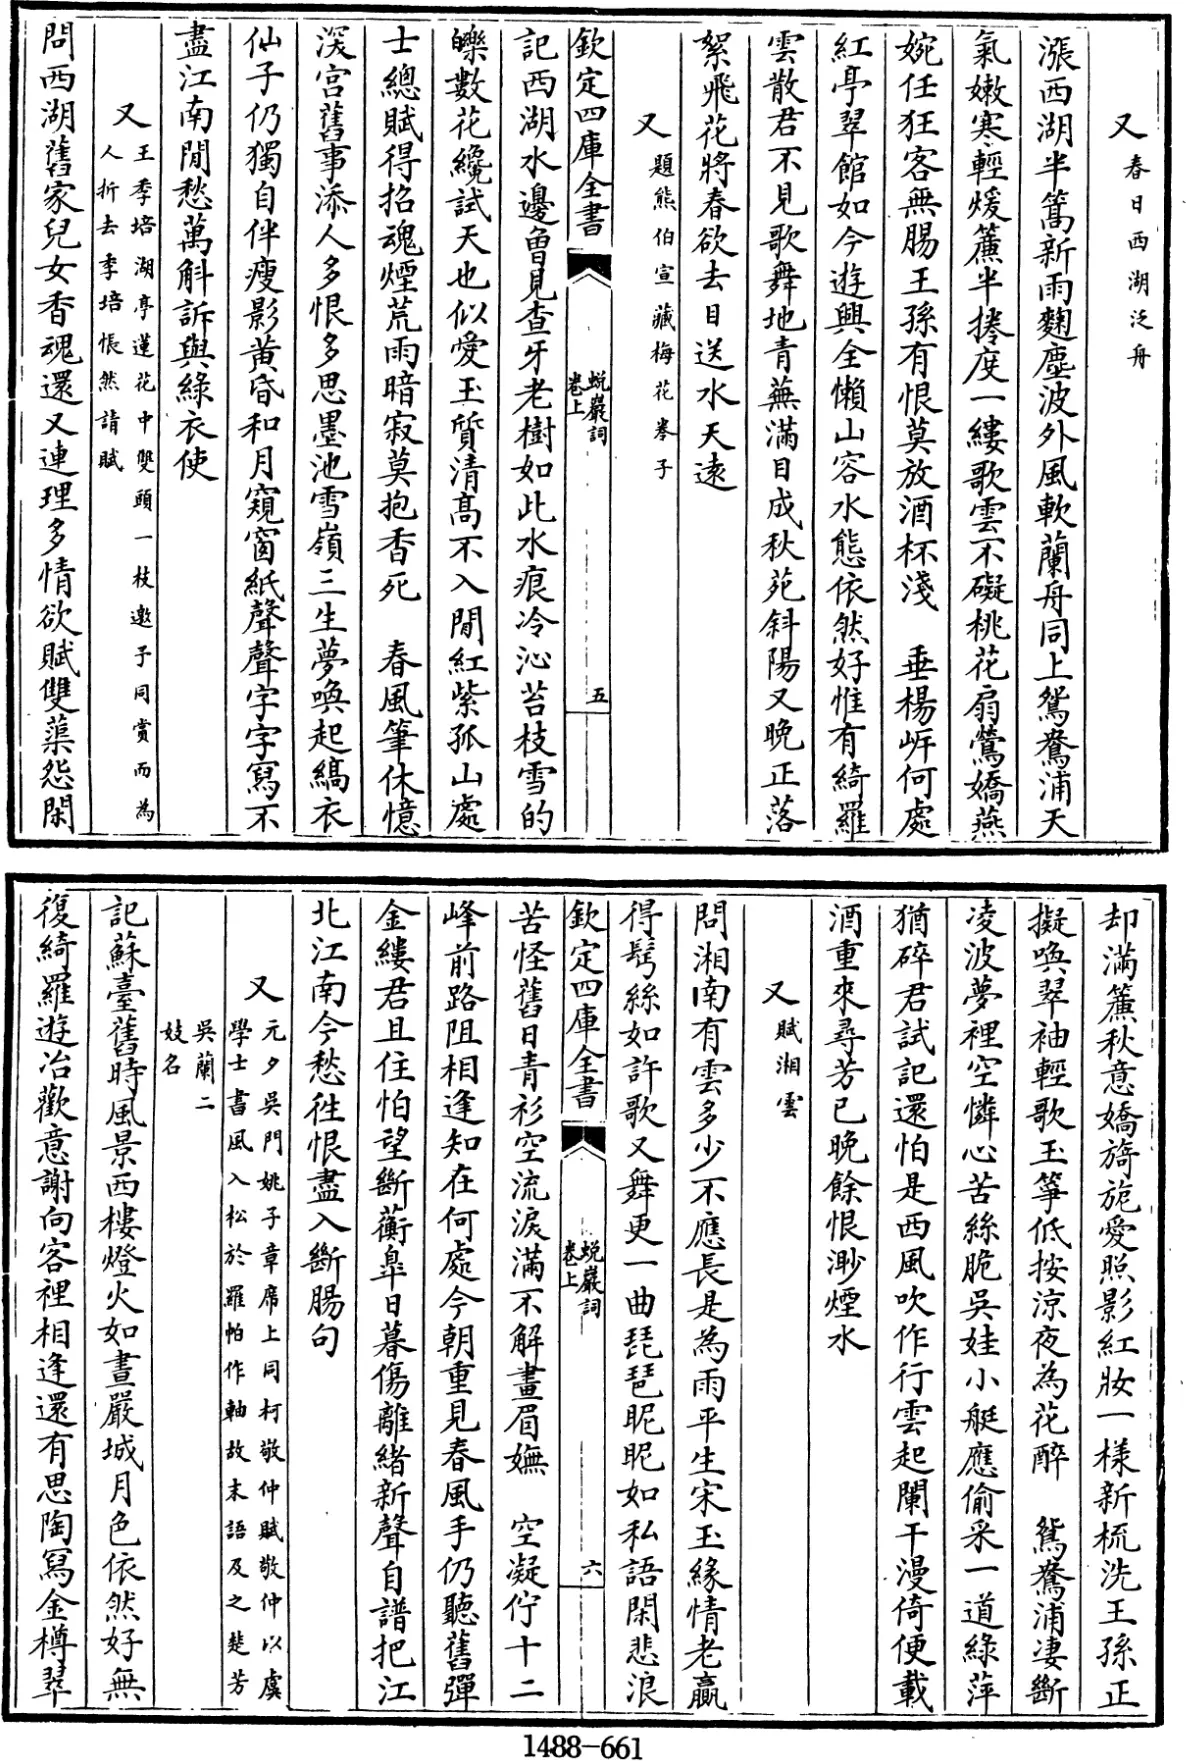 又春日西湖泛舟
漲西湖半篙新雨麴塵波外風軟蘭舟同上鴛鴦浦天
氣嫩寒輕煖簾半捲度一縷歌雲不礙桃花扇鶯嬌燕
婉任狂客無腸王孫有恨莫放酒杯淺　垂楊岍何處
紅亭翠館如今遊興全懶山容水態依然好惟有綺羅
雲散君不見歌舞地青蕪滿目成秋苑斜陽又晚正落
絮飛花將春欲去目送水天遠
又題熊伯宣藏梅花卷子
欽定四庫全書
蛻巖詞
卷上
五
記西湖水邊曾見查牙老樹如此水痕冷沁苔枝雪的
皪數花纔試天也似愛玉質清高不入閒紅紫孤山處
士總賦得招魂煙荒雨暗寂莫抱香死　春風筆休憶
深宮舊事添人多恨多思墨池雪嶺三生夢喚起縞衣
仙子仍獨自伴瘦影黃昏和月窺窗紙聲聲字字寫不
盡江南閒愁萬斛訴與綠衣使
又王季培湖亭蓮花中雙頭一枝邀予同賞而為
人折去季培悵然請賦
問西湖舊家兒女香魂還又連理多情欲賦雙蕖怨閑
却滿簾秋意嬌旖旎愛照影紅妝一樣新梳洗王孫正
擬喚翠袖輕歌玉箏低按涼夜為花醉　鴛鴦浦淒斷
凌波夢裡空憐心苦絲脆吳娃小艇應偷采一道綠萍
猶碎君試記還怕是西風吹作行雲起闌干漫倚便載
酒重來尋芳已晚餘恨渺煙水
又賦湘雲
問湘南有雲多少不應長是為雨平生宋玉緣情老贏
得鬂絲如許歌又舞更一曲琵琶昵昵如私語閑悲浪
欽定四庫全書
蛻巖詞
卷上
六
苦怪舊日青衫空流淚滿不解畫眉嫵　空凝佇十二
峰前路阻相逢知在何處今朝重見春風手仍聽舊彈
金縷君且住怕望斷蘅臯日暮傷離緒新聲自譜把江
北江南今愁往恨盡入斷腸句
又元夕吳門姚子章席上同柯敬仲賦敬仲以虞
學士書風入松於羅帕作軸故末語及之楚芳
吳蘭二
妓名
記蘇臺舊時風景西樓燈火如晝嚴城月色依然好無
復綺羅遊冶歡意謝向客裡相逢還有思陶寫金樽翠
1488-661